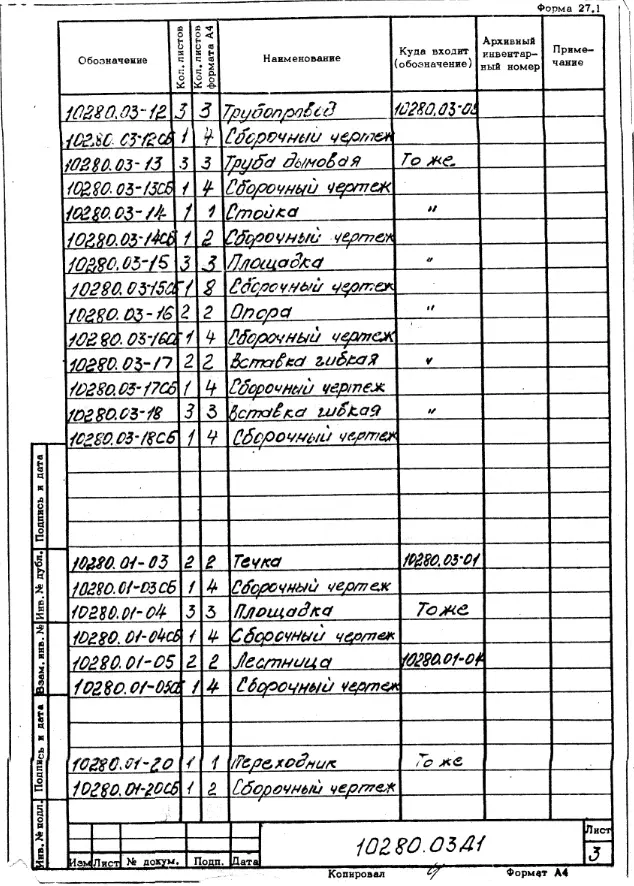 Форма 27.1
Обозначение Кол. листов Кол. листов формата А4 Наименование Куда входит (обозначение) Архивный инвентар-ный номер Приме-чание
10280.03-12 3 3 Трубопровод 10280.03-05
10280.03-12СБ 1 4 Сборочный чертеж
10280.03-13 3 3 Труба дымовая То же
10280.03-13СБ 1 4 Сборочный чертеж
10280.03-14 1 1 Стойка "
10280.03-14СБ 1 2 Сборочный чертеж
10280.03-15 3 3 Площадка "
10280.03-15СБ 1 8 Сборочный чертеж
10280.03-16 2 2 Опора "
10280.03-16СБ 1 4 Сборочный чертеж
10280.03-17 2 2 Вставка гибкая "
10280.03-17СБ 1 4 Сборочный чертеж
10280.03-18 3 3 Вставка гибкая "
10280.03-18СБ 1 4 Сборочный чертеж
10280.01-03 2 2 Течка 10280.03-01
10280.01-03СБ 1 4 Сборочный чертеж
10280.01-04 3 3 Площадка То же
10280.01-04СБ 1 4 Сборочный чертеж
10280.01-05 2 2 Лестница 10280.01-04
10280.01-05СБ 1 4 Сборочный чертеж
10280.01-20 1 1 Переходник То же
10280.01-20СБ 1 2 Сборочный чертеж
Инв. № подл. Подпись и дата Взам. инв. № Инв. № дубл. Подпись и дата
Изм Лист № докум. Подп. Дата
10280.03Д1
Лист
3
Копировал
Формат А4